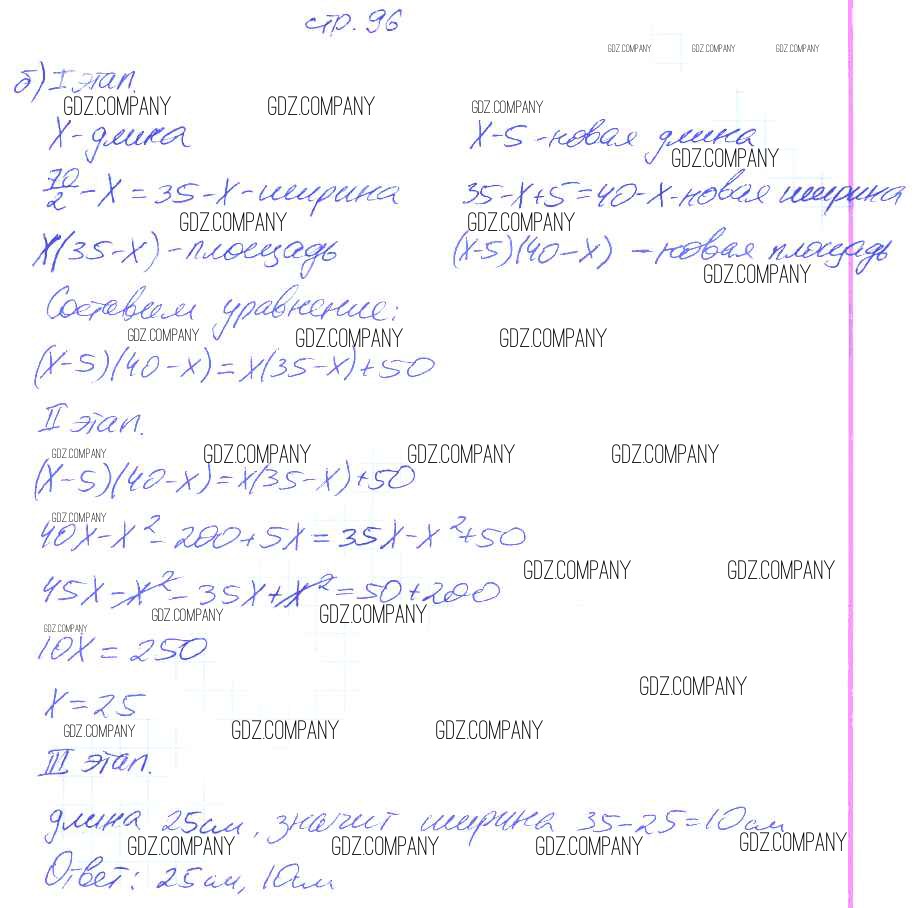 стр. 96
GDZ.COMPANY GDZ.COMPANY GDZ.COMPANY
б) I этап.
GDZ.COMPANY GDZ.COMPANY GDZ.COMPANY
X - длина X-5 - новая длина
GDZ.COMPANY
70/2 - X = 35 - X - ширина 35-X+5 = 40-X - новая ширина
GDZ.COMPANY GDZ.COMPANY
X(35-X) - площадь (X-5)(40-X) - новая площадь
GDZ.COMPANY
Составим уравнение:
GDZ.COMPANY GDZ.COMPANY GDZ.COMPANY
(X-5)(40-X) = X(35-X)+50
II этап.
GDZ.COMPANY GDZ.COMPANY GDZ.COMPANY GDZ.COMPANY
(X-5)(40-X) = X(35-X)+50
GDZ.COMPANY
40X-X²-200+5X = 35X-X²+50
GDZ.COMPANY GDZ.COMPANY
45X-X²-35X+X² = 50+200
GDZ.COMPANY GDZ.COMPANY
GDZ.COMPANY
10X = 250
GDZ.COMPANY
X = 25
GDZ.COMPANY GDZ.COMPANY GDZ.COMPANY
III этап.
длина 25см, значит ширина 35-25=10см
GDZ.COMPANY GDZ.COMPANY GDZ.COMPANY GDZ.COMPANY
Ответ: 25см, 10см